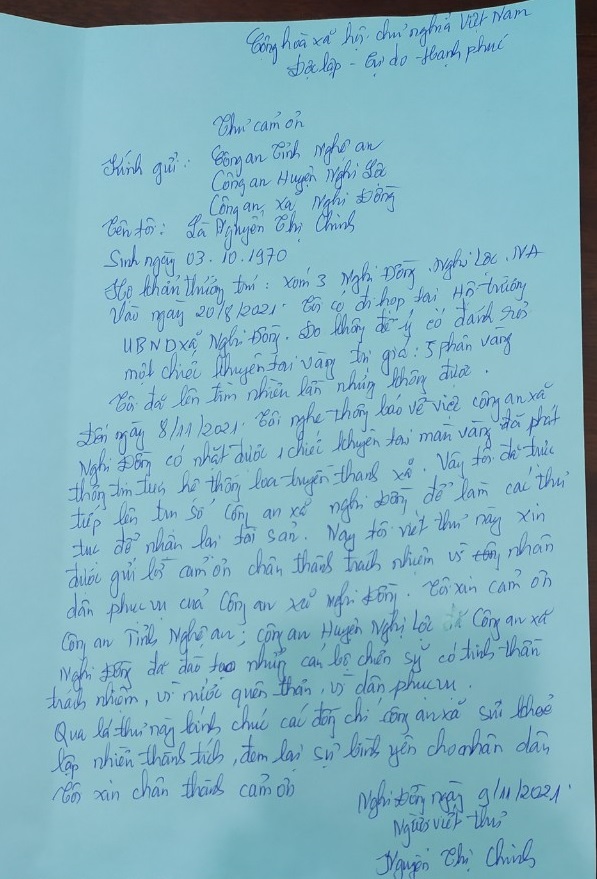 Cộng hoà xã hội chủ nghĩa Việt Nam
Độc lập - Tự do - Hạnh phúc
Thư cảm ơn
Kính gửi: Công an Tỉnh Nghệ an
Công an Huyện Nghi Lộc
Công an xã Nghi Đồng
Tên tôi: Là Nguyễn Thị Chinh
Sinh ngày 03.10.1970
Hộ khẩu thường trú: Xóm 3 Nghi Đồng, Nghi Lộc, NA
Vào ngày 20/8/2021. Tôi có đi họp tại Hội trường
UBND xã Nghi Đồng. Do không để ý có đánh rơi
một chiếc khuyên tai vàng trị giá: 5 phân vàng.
Tôi đã lên tìm nhiều lần nhưng không được.
Đến ngày 8/11/2021. Tôi nghe thông báo về việc công an xã
Nghi Đồng có nhặt được 1 chiếc khuyên tai màu vàng đã phát
thông tin trên hệ thống loa truyền thanh xã. Vậy tôi đã trực
tiếp lên trụ sở Công an xã nghi Đồng để làm các thủ
tục để nhận lại tài sản. Nay tôi viết thư này xin
được gửi lời cảm ơn chân thành trách nhiệm vì nhân
dân phục vụ của Công an xã Nghi Đồng. Tôi xin cảm ơn
Công an Tỉnh Nghệ an; công an Huyện Nghi Lộc Công an xã
Nghi Đồng đã đào tạo những cán bộ chiến sỹ có tinh thần
trách nhiệm, vì nước quên thân, vì dân phục vụ.
Qua lá thư này kính chúc các đồng chí công an xã sức khoẻ
lập nhiều thành tích, đem lại sự bình yên cho nhân dân
Tôi xin chân thành cảm ơn
Nghi Đồng ngày 9/11/2021.
Người viết thư
Nguyễn Thị Chinh